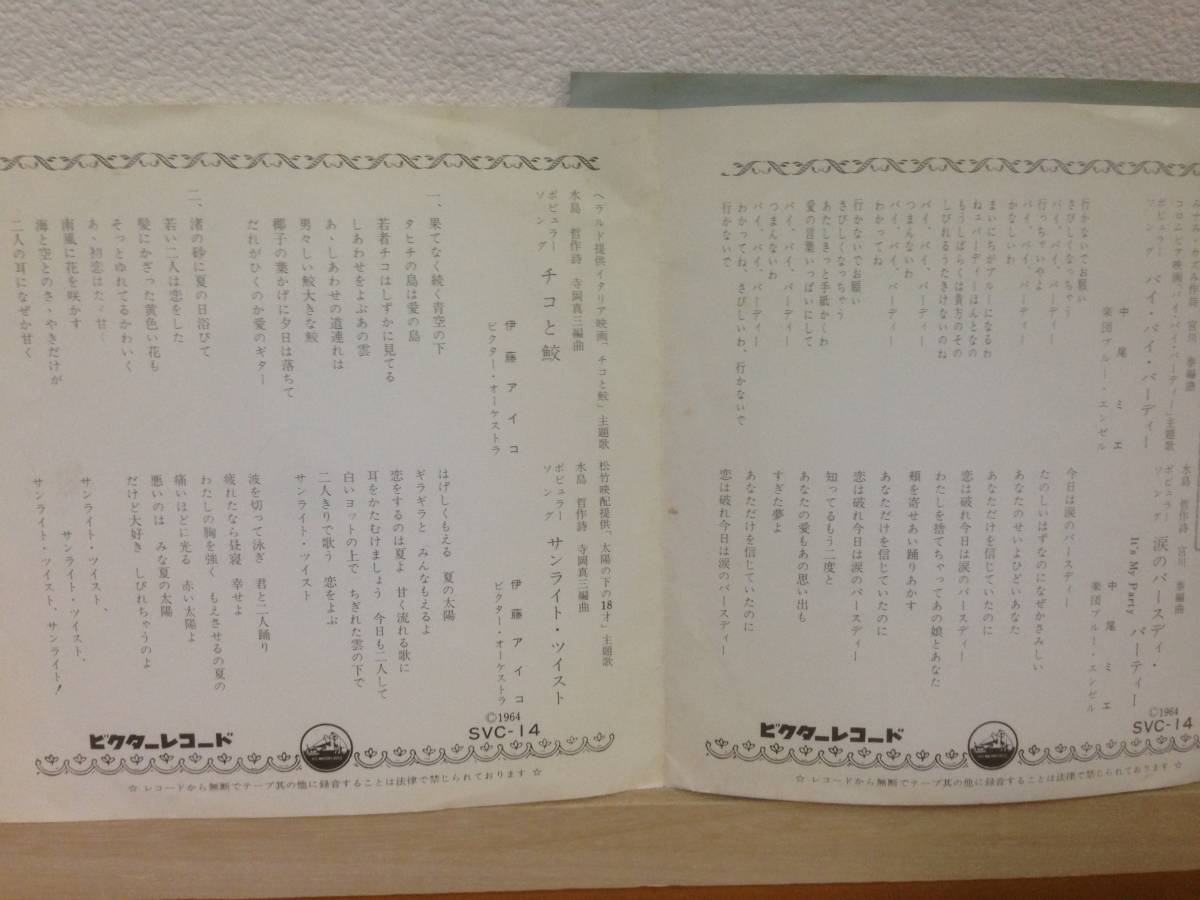 コロムビア映画「バイ・バイ・バーディー」主題歌
ポピュラーソング
バイ・バイ・バーディー
中尾ミエ
楽団ブルー・エンゼル
行かないでお願い
さびしくなっちゃう
バイ、バイ、バーディー
行っちゃいやよ
バイ、バイ、バーディー
かなしいわ
まいにちがブルーになるわ
ねェバーディーほんとなの
もうしばらくは貴方のその
しびれるうたきけないのね
バイ、バイ、バーディー
つまんないわ
バイ、バイ、バーディー
わかってね
行かないでお願い
さびしくなっちゃう
あたしきっと手紙かくわ
愛の言葉いっぱいにして
バイ、バイ、バーディー
つまんないわ
バイ、バイ、バーディー
わかってね、さびしいわ、行かないで
水島 哲作詩 宮川 泰編曲
ポピュラーソング
涙のバースディ・パーティー
It's My Party
中尾ミエ
楽団ブルー・エンゼル
今日は涙のバースディー
たのしいはずなのになぜかさみしい
あなたのせいよひどいあなた
あなただけを信じていたのに
恋は破れ今日は涙のバースディー
わたしを捨てちゃってあの娘とあなた
頬を寄せあい踊りあかす
あなただけを信じていたのに
恋は破れ今日は涙のバースディー
知ってるもう二度と
あなたの愛もあの思い出も
すぎた夢よ
あなただけを信じていたのに
恋は破れ今日は涙のバースディー
©1964
SVC-14
ビクターレコード
☆ レコードから無断でテープ其の他に録音することは法律で禁じられております ☆
ヘラルド提供イタリア映画「チコと鮫」主題歌
水島 哲作詩 寺岡真三編曲
ポピュラーソング
チコと鮫
伊藤アイコ
ビクター・オーケストラ
一、果てなく続く青空の下
タヒチの島は愛の島
若者チコはしずかに見てる
しあわせをよぶあの雲
あゝしあわせの道連れは
男々しい鮫大きな鮫
椰子の葉かげに夕日は落ちて
だれがひくのか愛のギター
二、渚の砂に夏の日浴びて
若い二人は恋をした
髪にかざった黄色い花も
そっとゆれてるかわいく
あゝ初恋はたゞ甘く
南風に花を咲かす
海と空とのさゝやきだけが
二人の耳になぜか甘く
松竹映配提供「太陽の下の18才」主題歌
水島 哲作詩 寺岡真三編曲
ポピュラーソング
サンライト・ツイスト
伊藤アイコ
ビクター・オーケストラ
はげしくもえる 夏の太陽
ギラギラと みんなもえるよ
恋をするのは夏よ 甘く流れる歌に
耳をかたむけましょう 今日も二人して
白いヨットの上で ちぎれた雲の下で
二人きりで歌う 恋をよぶ
サンライト・ツイスト
波を切って泳ぎ 君と二人踊り
疲れたなら昼寝 幸せよ
わたしの胸を強く もえさせるの夏の
痛いほどに光る 赤い太陽よ
悪いのは みな夏の太陽
だけど大好き しびれちゃうのよ
サンライト・ツイスト、
サンライト・ツイスト、
サンライト・ツイスト、サンライト!
©1964
SVC-14
ビクターレコード
☆ レコードから無断でテープ其の他に録音することは法律で禁じられております ☆